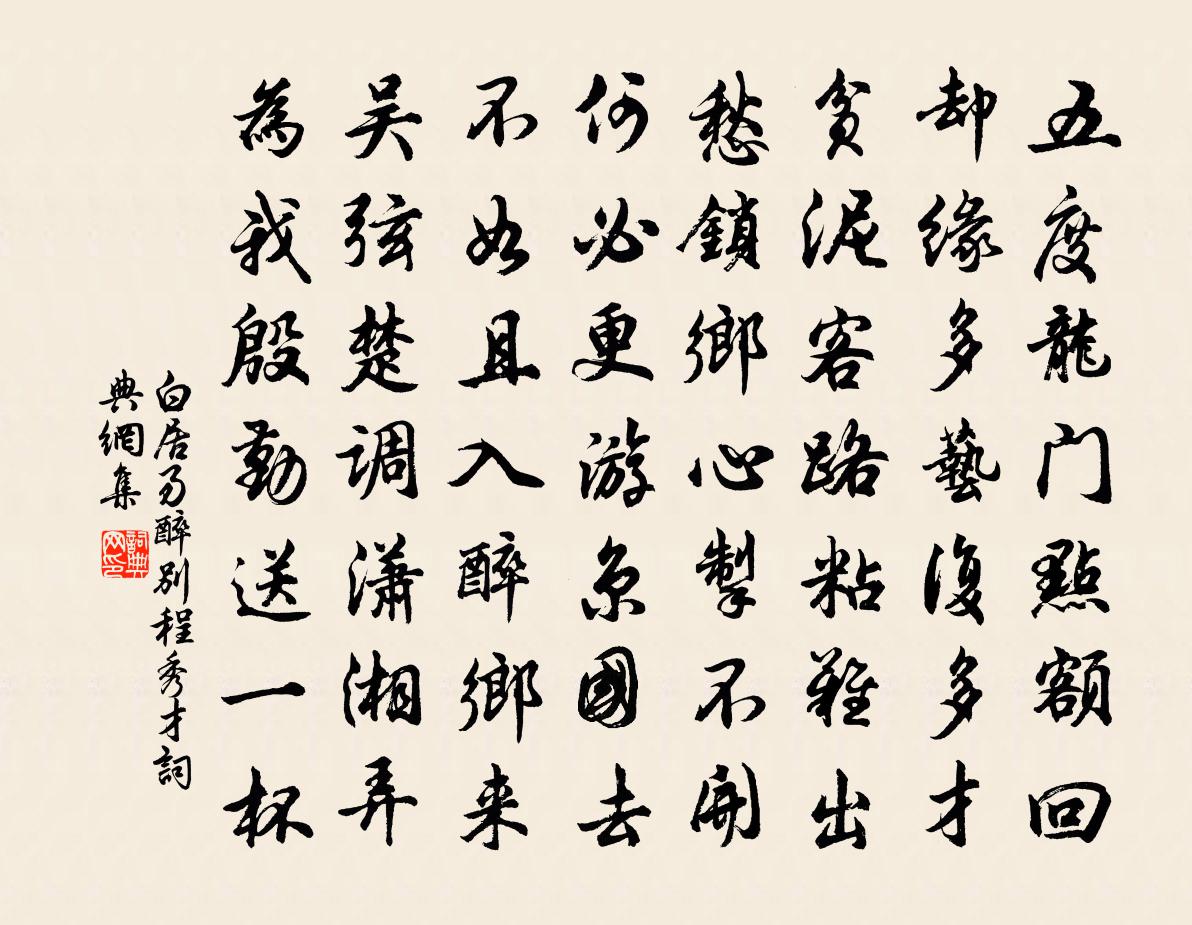 五度龍门點額回
却緣多藝復多才
貧泥客路粘難出
愁鎖鄉心掣不開
何必更游京國去
不如且入醉鄉来
吴弦楚调潇湘弄
為我殷勤送一杯
白居易醉別程秀才詞
典網集
詞典
网印